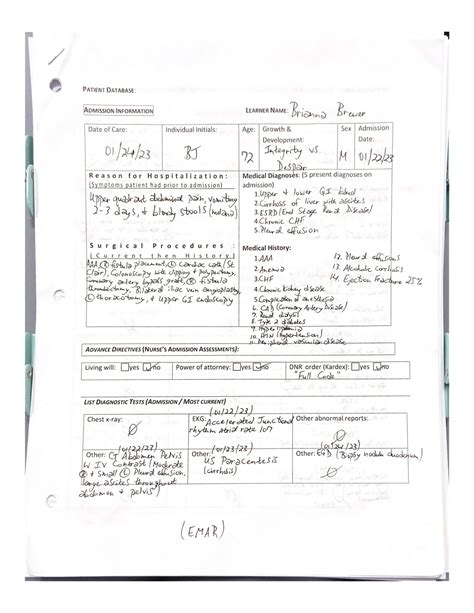 PATIENT DATABASE:
ADMISSION INFORMATION
LEARNER NAME: Brianna Brewer
Date of Care:
01/24/23
Individual Initials:
BJ
Age:
72
Growth &
Development:
Integrity vs.
Despair
Sex
M
Admission
Date:
01/22/23
Reason for Hospitalization:
(Symptoms patient had prior to admission)
Upper quadrant abdominal pain, vomiting
2-3 days, & bloody stools
Surgical Procedures :
(Current then History)
AAA, fistula placement, cardiac cath
Colonoscopy with clipping & polypectomy,
Coronary artery bypass graft, fistula
thrombectomy, Bilateral iliac vein angioplasty,
thoracotomy, & upper GI endoscopy
Medical Diagnoses: (5 present diagnoses on
admission)
1. Upper & lower GI bleed
2. Cirrhosis of liver with ascites
3. ESRD (End Stage Renal Disease)
4. Chronic CHF
5. Pleural effusion
Medical History:
1. AAA
2. Anemia
3. CHF
4. Chronic kidney disease
5. Complication of anesthesia
6. CAD (Coronary Artery Disease)
7. Renal dialysis
8. Type 2 diabetes
9.
10. HTN (Hypertension)
11. Peripheral vascular disease
12. Pleural effusions
13. Alcoholic Cirrhosis
14. Ejection Fracture 25%
ADVANCE DIRECTIVES (NURSE'S ADMISSION ASSESSMENTS):
Living will: yes no
Power of attorney: yes no
DNR order (Kardex): yes no
"Full Code"
LIST DIAGNOSTIC TESTS (ADMISSION / MOST CURRENT)
Chest x-ray:
(01/22/23)
EKG: Accelerated Junctional
rhythm atrial rate 107
Other abnormal reports:
(01/22/23)
Other: CT Abdomen Pelvis
W IV Contrast (Moderate
R & small L Pleural effusion,
large ascites throughout
abdomen & pelvis)
(01/23/23)
Other: US Paracentesis
(cirrhosis)
(01/24/23)
Other: EGD (Biopsy nodule duodenum)
(EMAR)